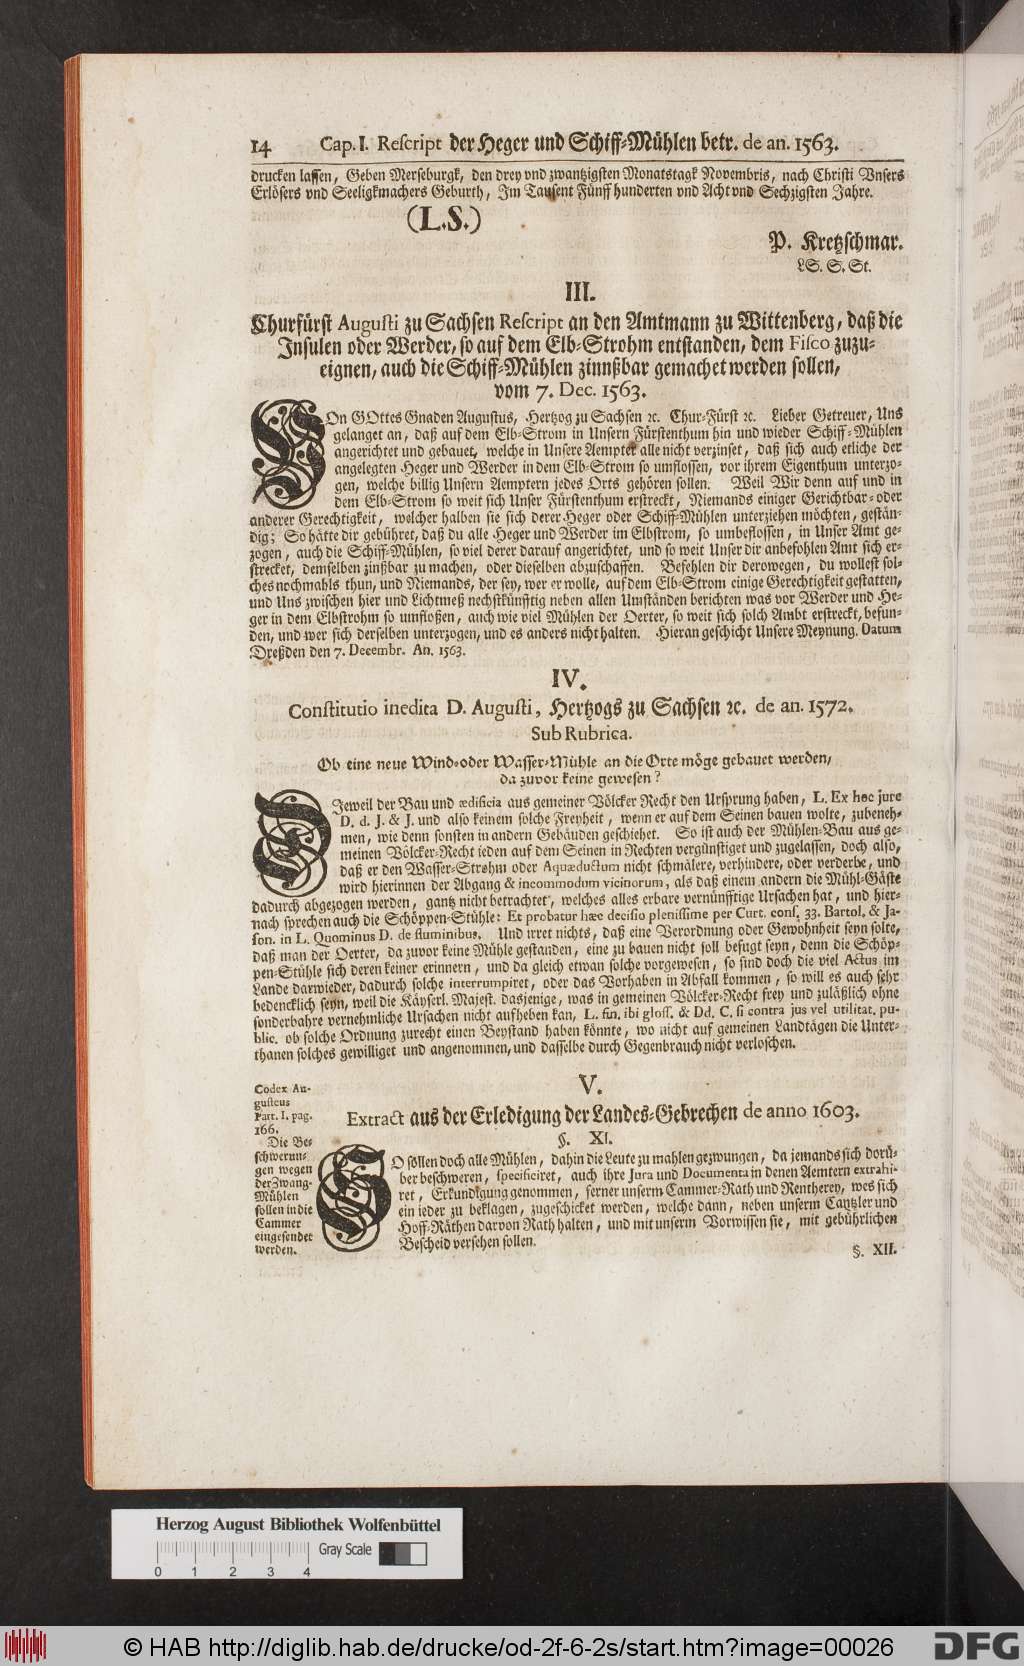 14 Cap. I. Rescript der Heger und Schiff-Mühlen betr. de an. 1563.
drucken lassen, Geben Merseburgk, den drey vnd zwantzigsten Monatstagk Novembris, nach Christi Vnsers
Erlösers vnd Seeligkmachers Geburth, Im Tausent Fünff hunderten vnd Acht vnd Sechzigsten Jahre.
(L.S.)
P. Kretzschmar.
LS. S. St.
III.
Churfürst Augusti zu Sachsen Rescript an den Amtmann zu Wittenberg, daß die
Insulen oder Werder, so auf dem Elb-Strohm entstanden, dem Fisco zuzu-
eignen, auch die Schiff-Mühlen zinnßbar gemachet werden sollen,
vom 7. Dec. 1563.
VOn GOttes Gnaden Augustus, Hertzog zu Sachsen ꝛc. Chur-Fürst ꝛc. Lieber Getreuer, Uns
gelanget an, daß auf dem Elb-Strom in Unsern Fürstenthum hin und wieder Schiff-Mühlen
angerichtet und gebauet, welche in Unsere Aempter alle nicht verzinset, daß sich auch etliche der
angelegten Heger und Werder in dem Elb-Strom so umflossen, vor ihrem Eigenthum unterzo-
gen, welche billig Unsern Aemptern jedes Orts gehören sollen. Weil Wir denn auf und in
dem Elb-Strom so weit sich Unser Fürstenthum erstreckt, Niemands einiger Gerichtbar- oder
anderer Gerechtigkeit, welcher halben sie sich derer Heger oder Schiff-Mühlen unterziehen möchten, gestän-
dig; So hätte dir gebühret, daß du alle Heger und Werder im Elbstrom, so umbeflossen, in Unser Amt ge-
zogen, auch die Schiff-Mühlen, so viel derer darauf angerichtet, und so weit Unser dir anbefohlen Amt sich er-
strecket, demselben zinßbar zu machen, oder dieselben abzuschaffen. Befehlen dir derowegen, du wollest sol-
ches nochmahls thun, und Niemands, der sey, wer er wolle, auf dem Elb-Strom einige Gerechtigkeit gestatten,
und Uns zwischen hier und Lichtmeß nechstkünfftig neben allen Umständen berichten was vor Werder und He-
ger in dem Elbstrohm so umfloßen, auch wie viel Mühlen der Oerter, so weit sich solch Ambt erstreckt, befun-
den, und wer sich derselben unterzogen, und es anders nicht halten. Hieran geschicht Unsere Meynung. Datum
Dreßden den 7. Decembr. An. 1563.
IV.
Constitutio inedita D. Augusti, Hertzogs zu Sachsen ꝛc. de an. 1572.
Sub Rubrica.
Ob eine neue Wind- oder Wasser-Mühle an die Orte möge gebauet werden,
da zuvor keine gewesen?
DIeweil der Bau und ædificia aus gemeiner Völcker Recht den Ursprung haben, L. Ex hoc jure
D. d. J. & J. und also keinem solche Freyheit, wenn er auf dem Seinen bauen wolte, zubeneh-
men, wie denn sonsten in andern Gebäuden geschiehet. So ist auch der Mühlen-Bau aus ge-
meinen Völcker-Recht ieden auf dem Seinen in Rechten vergünstiget und zugelassen, doch also,
daß er den Wasser-Strohm oder Aquæductum nicht schmälere, verhindere, oder verderbe, und
wird hierinnen der Abgang & incommodum vicinorum, als daß einem andern die Mühl-Gäste
dadurch abgezogen werden, gantz nicht betrachtet, welches alles erbare vernünfftige Ursachen hat, und hier-
nach sprechen auch die Schöppen-Stühle: Et probatur hæc decisio plenissime per Curt. cons. 33. Bartol. & Ja-
son. in L. Quominus D. de fluminibus. Und irret nichts, daß eine Verordnung oder Gewohnheit seyn solte,
daß man der Oerter, da zuvor keine Mühle gestanden, eine zu bauen nicht soll befugt seyn, denn die Schöp-
pen-Stühle sich deren keiner erinnern, und da gleich etwan solche vorgewesen, so sind doch die viel Actus im
Lande darwieder, dadurch solche interrumpiret, oder das Vorhaben in Abfall kommen, so will es auch sehr
bedencklich seyn, weil die Käyserl. Majest. dasjenige, was in gemeinen Völcker-Recht frey und zuläßlich ohne
sonderbahre vernehmliche Ursachen nicht aufheben kan, L. fin. ibi gloss. & Dd. C. si contra jus vel utilitat. pu-
blic. ob solche Ordnung zurecht einen Beystand haben könnte, wo nicht auf gemeinen Landtägen die Unter-
thanen solches gewilliget und angenommen, und dasselbe durch Gegenbrauch nicht verloschen.
V.
Extract aus der Erledigung der Landes-Gebrechen de anno 1603.
§. XI.
Codex Au-
gusteus
Part. I. pag.
166.
Die Be-
schwerun-
gen wegen
der Zwang-
Mühlen
sollen in die
Cammer
eingesendet
werden.
SO sollen doch alle Mühlen, dahin die Leute zu mahlen gezwungen, da jemands sich dorü-
ber beschweren, specificiret, auch ihre Jura und Documenta in denen Aemtern extrahi-
ret, Erkundigung genommen, ferner unserm Cammer-Rath und Rentherey, wes sich
ein ieder zu beklagen, zugeschicket werden, welche dann, neben unserm Cantzler und
Hoff-Räthen darvon Rath halten, und mit unserm Vorwissen sie, mit gebührlichen
Bescheid versehen sollen.
§. XII.
Herzog August Bibliothek Wolfenbüttel
Gray Scale
0 1 2 3 4
© HAB http://diglib.hab.de/drucke/od-2f-6-2s/start.htm?image=00026
DFG